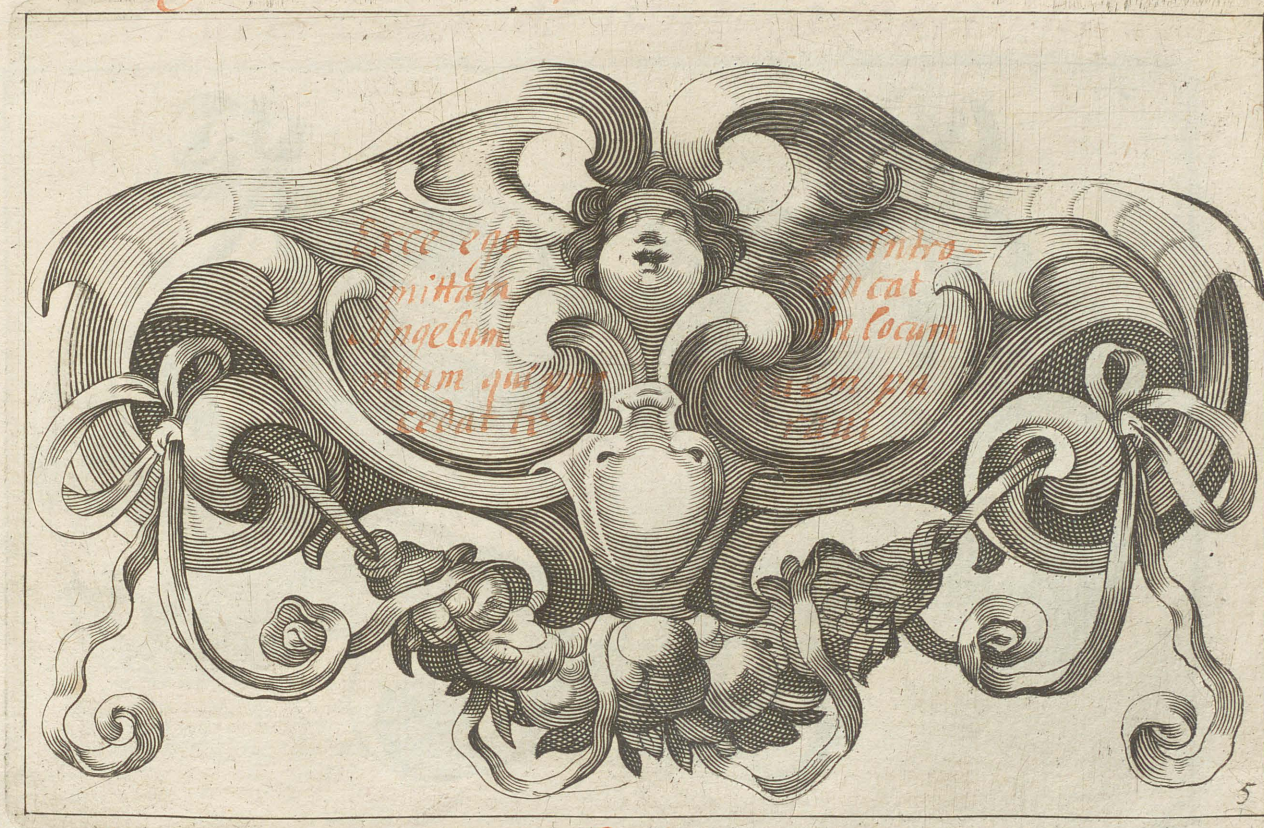 Ecce ego
mittam
Angelum
meum qui
cedat te
intro-
ducat
in locum
quem pa
ravi
5